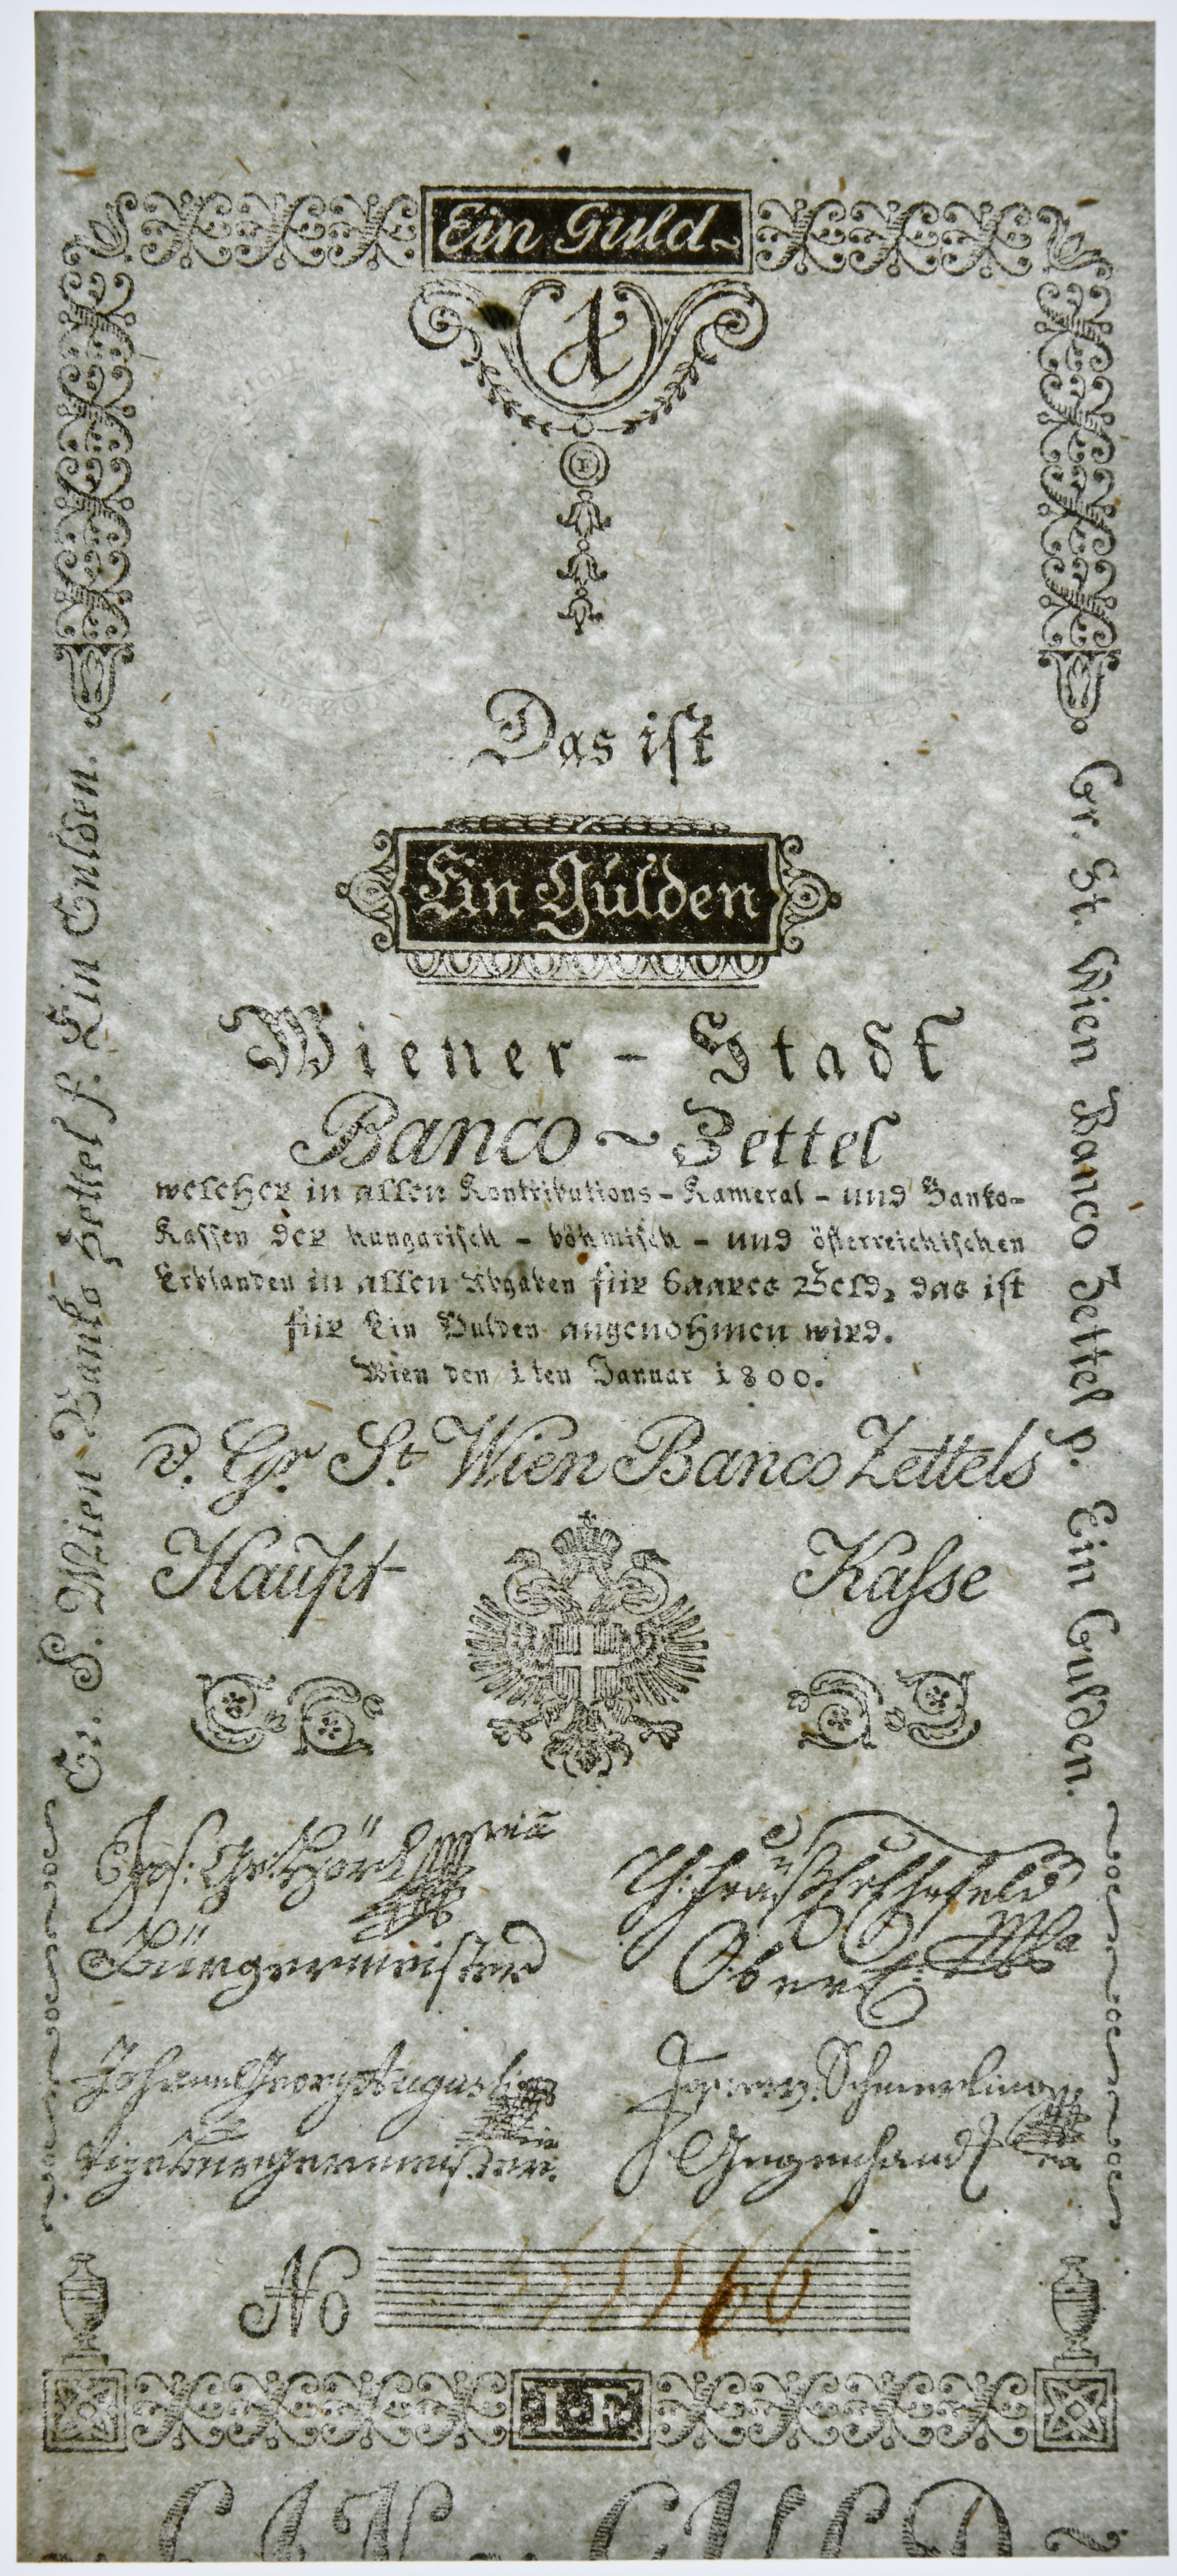 Ein Guld~
1
Das ist
Ein Gulden
Wiener - Stadt
Banco ~ Zettel
welcher in allen Kontributions - Kameral - und Banko-
Kassen der hungarisch - böhmisch - und österreichischen
Erblanden in allen Abgaben für baares Geld, das ist
für Ein Gulden angenohmen wird.
Wien den 1ten Januar 1800.
d. Gr. St. Wien Banco Zettels
Haupt Kasse
Gr. S. Wien Banko Zettel f. Ein Gulden.
Gr. St. Wien Banco Zettel p. Ein Gulden.
Jos. Ge. Hörl
Bürgermeister
Ober
Johann Georg Augusti
Vizebürgermeister
v. Schmerling
Gegenhand
No
I F